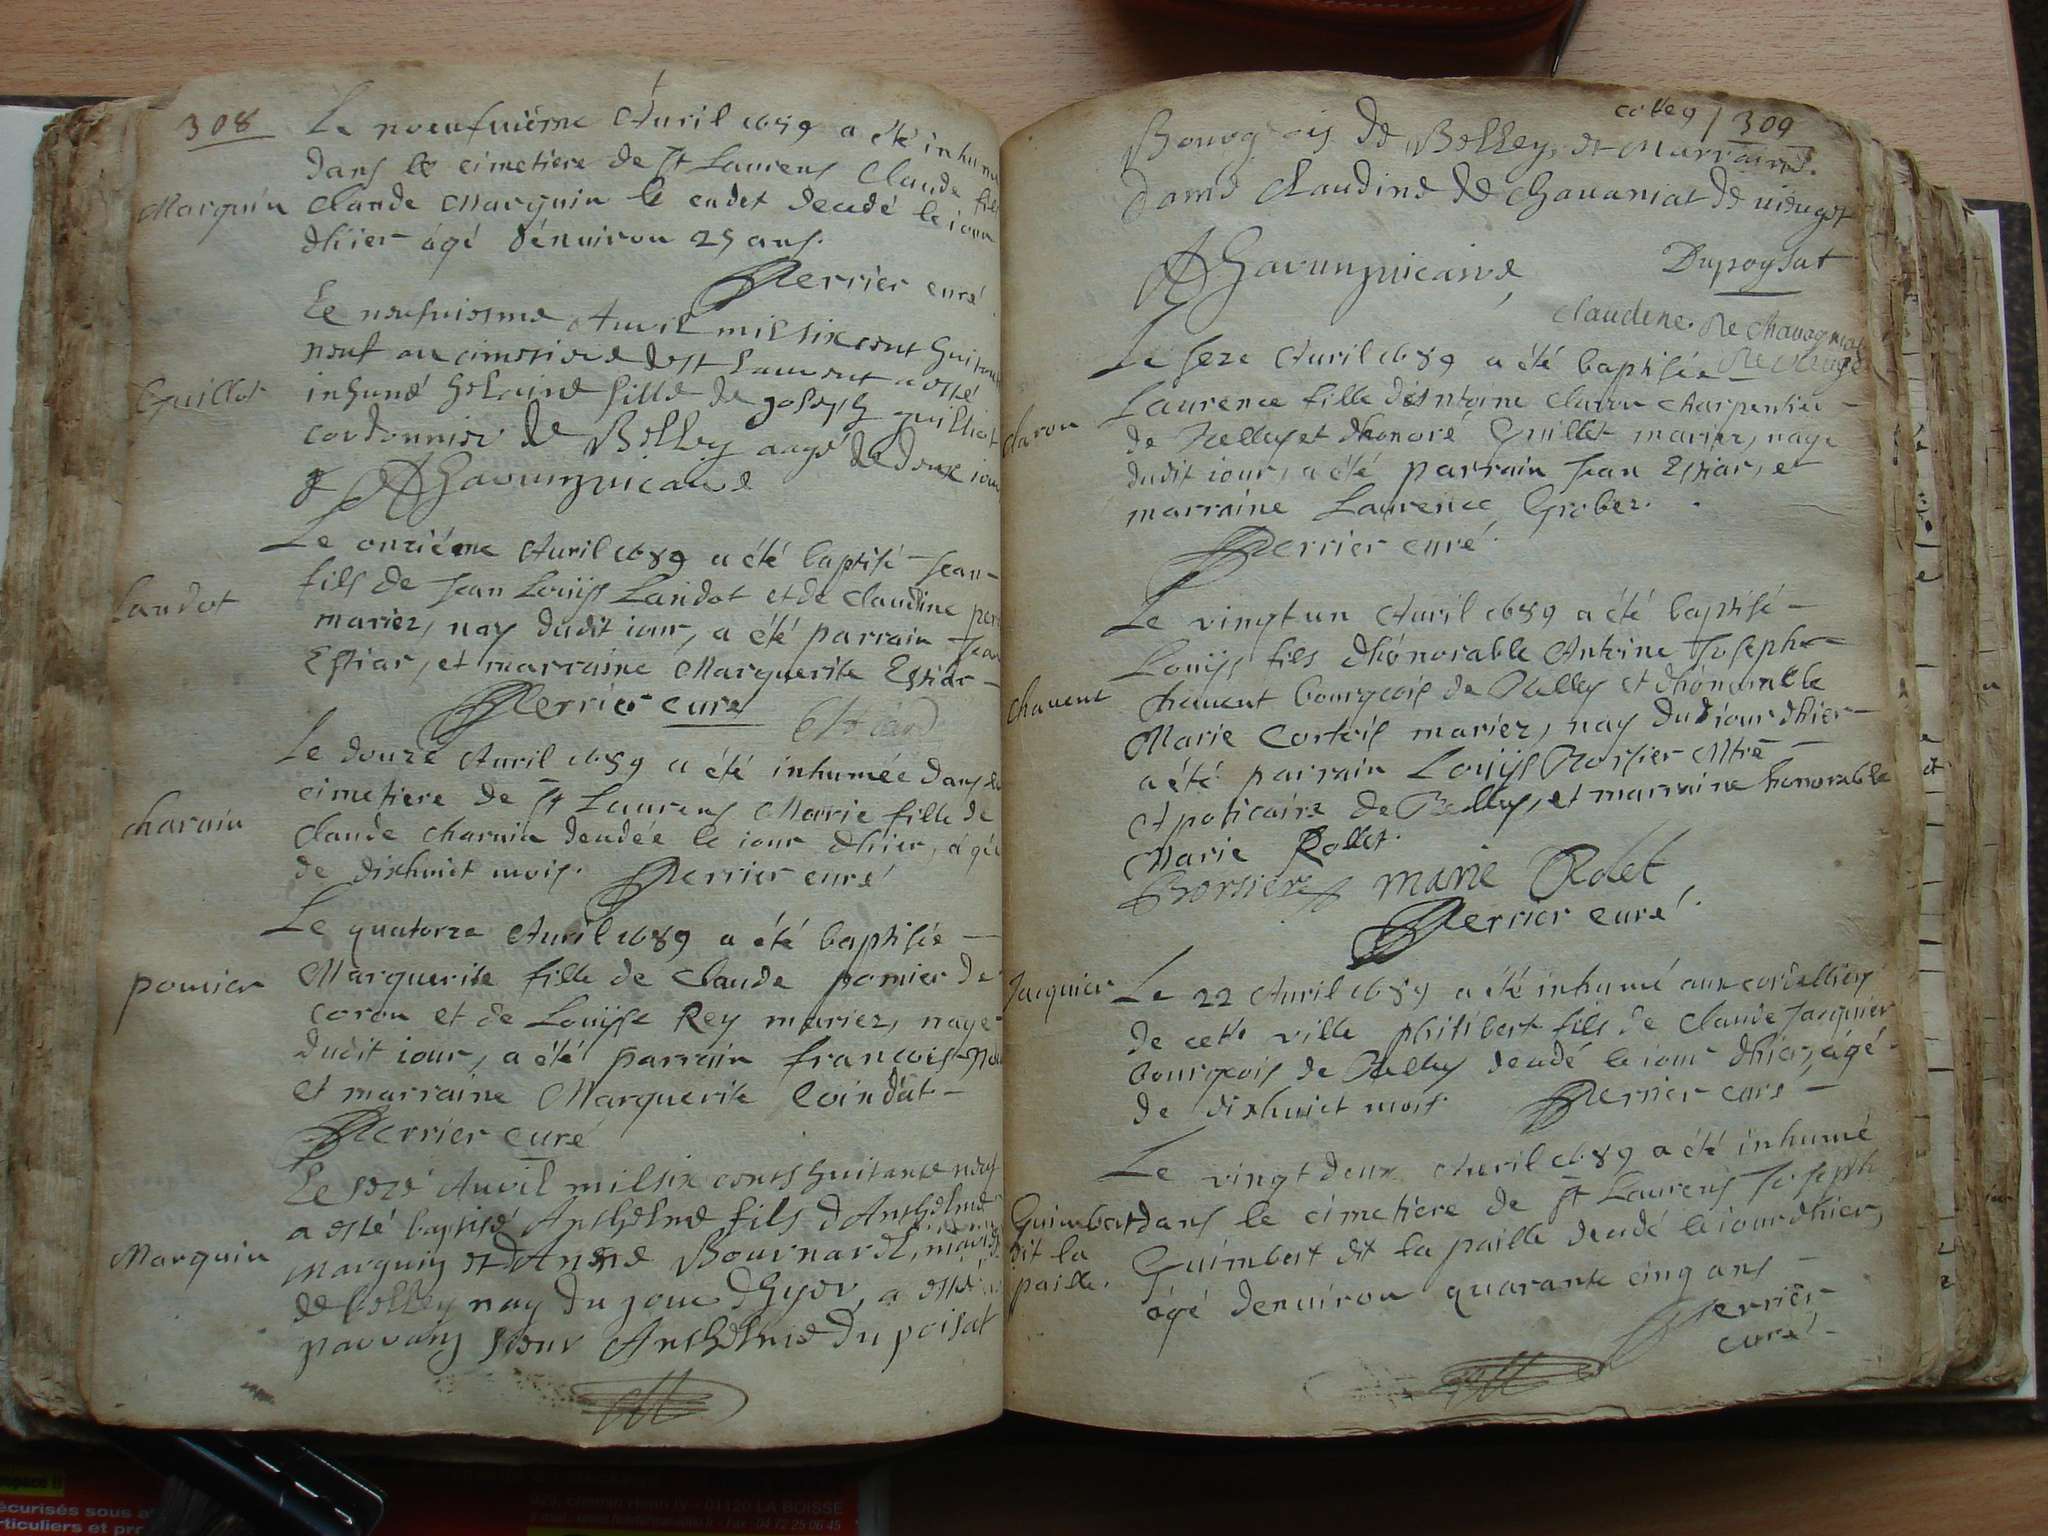 308
Le noeufuiéme Auril 1689 a été inhumé
dans le cimetiere de St Laurens Claude fils
Marquin
Claude Marquin le cadet decedé le iour
dhier âgé dénuiron 25 ans.
Perrier curé
Le neufuiesme Auril mil six cent huitante
neuf au cimetiere de st Laurent a esté
Guillot
inhumé fille de Joseph guilliot
cordonnier de Belley aagé de deux iours
Le onziéme Auril 1689 a été baptisé Jean
Landot
fils de Jean Louijs Landot et de Claudine
mariez, nay dudit iour, a été parrain Jean
Estiar, et marraine Marguerite Estiar
Perrier curé
Le douze Auril 1689 a été inhumée dans le
cimetiere de St Laurens Marie fille de
charuin
Claude charuin decedée le iour dhier, âgée
de dixhuict mois. Perrier curé
Le quatorze Auril 1689 a été baptisée
pomier
Marguerite fille de Claude pomier de
coron et de Louijse Rey mariez, naye
dudit iour, a été parrain francois
et marraine Marguerite
Perrier curé
Le seze Auril mil six cents huitante neuf
a esté baptisé Anthelme fils d'Anthelme
Marquin
Marquin et d'Anne Bournardt, mariés
de belley nay du jour dhyer, a esté
parrain sieur Anthelme du poisat
cotte 9 / 309
Bourgeois de Belley, et Marraine
dame Claudine de Chauaniat de uieuget
Dupoysat
claudine. de chauagniat
Le seze Auril 1689 a été baptisée
claron
Laurence fille dAntoine Claron charpentier
de Belley et dhonoré Guillet mariez, naye
dudit iour, a été parrain Jean Estiar, et
marraine Laurence Grobez.
Perrier curé
Le vingt un Auril 1689 a été baptisé
Louijs fils dhonorable Antoine Joseph
chauent
chauent bourgeois de Belley et dhonorable
Marie Corteis mariez, nay dud iour dhier
a été parrain Louijs Borsier Mtre
Apoticaire de Belley, et marraine honorable
Marie Rollet.
Borsier marie Rolet
Perrier curé
Jacquier
Le 22 Auril 1689 a été inhumé aux cordelliers
de cette ville philibert fils de Claude Jacquier
bourgeois de Belley decedé le iour dhier, âgé
de dixhuict mois. Perrier curé
Le vingt deux Auril 1689 a été inhumé
Guimbert
dans le cimetiere de St Laurens Joseph
dit la
Guimbert dit la paille decedé le iour dhier,
paille.
âgé denuiron quarante cinq ans
Perrier
curé
écurisés sous
rticuliers et pr
01120 LA BOISSE